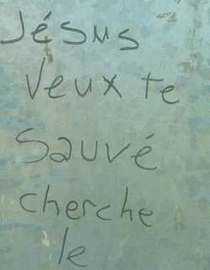 Jésus
Veux te
Sauvé
cherche
le